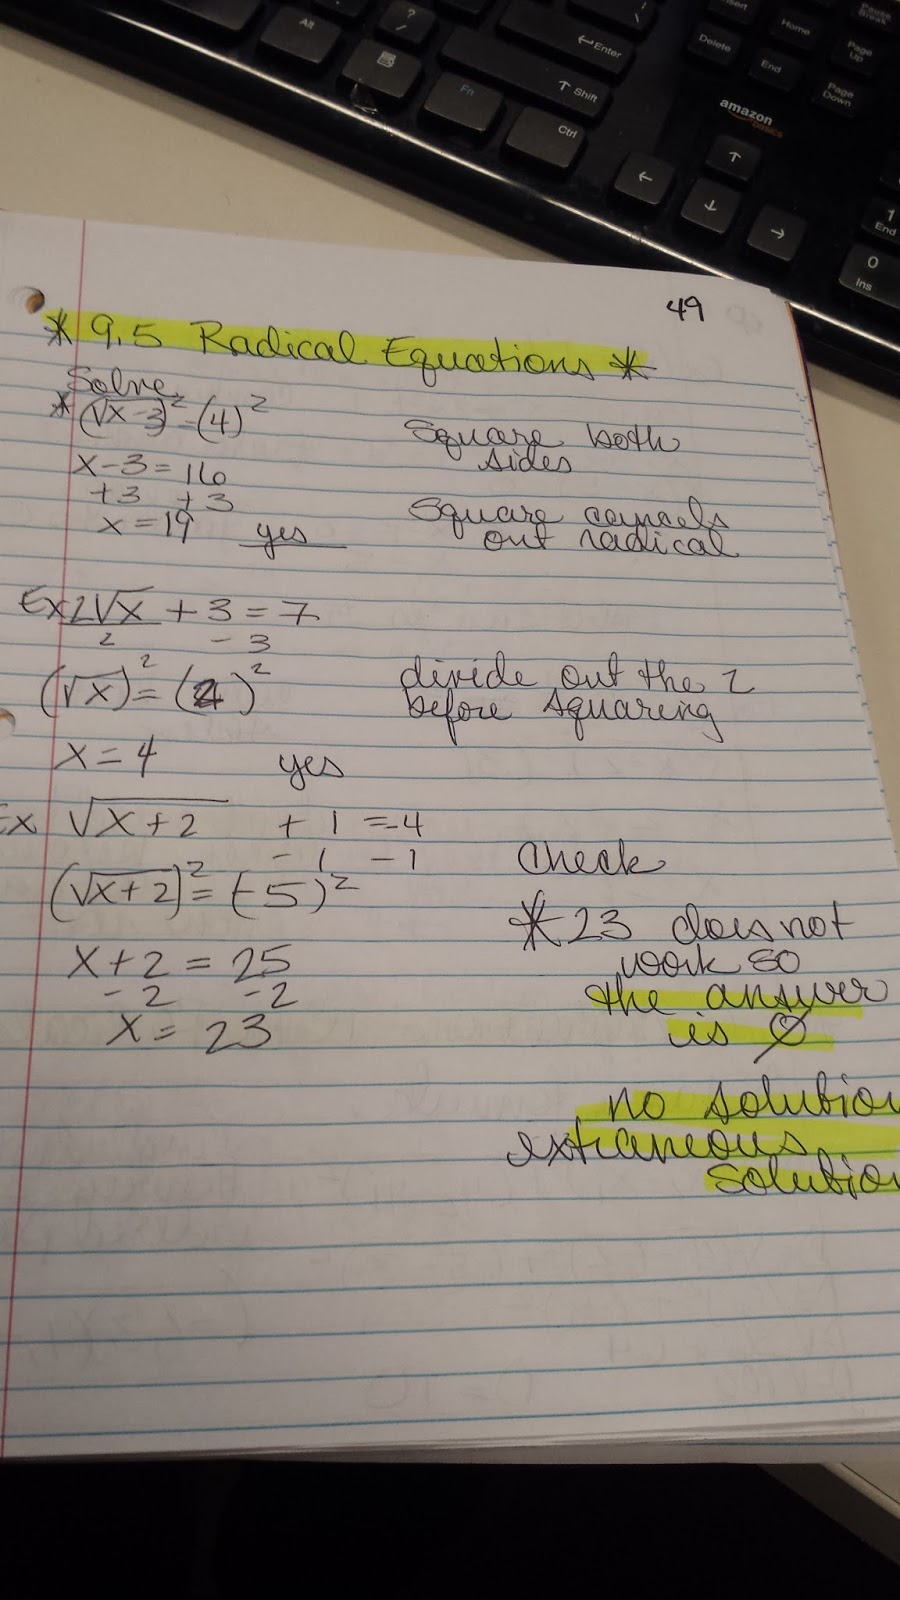 Alt
?
/
Enter
Shift
Fn
Ctrl
Insert
Home
Pause
Break
Delete
End
Page
Up
Page
Down
amazon
basics
←
↑
↓
→
1
End
0
Ins
49
* 9.5 Radical Equations *
Solve
* (√x-3)² = (4)²
Square both
sides
x-3=16
+3 +3
x=19 yes
Square cancels
out radical
Ex 2√x + 3 = 7
2 - 3
(√x)² = (2)²
divide out the 2
before squaring
x=4 yes
Ex √x+2 + 1 =-4
- 1 -1
Check
(√x+2)² = (-5)²
*23 does not
work so
x+2 = 25
-2 -2
the answer
x= 23
is ∅
no solution
extraneous
solution